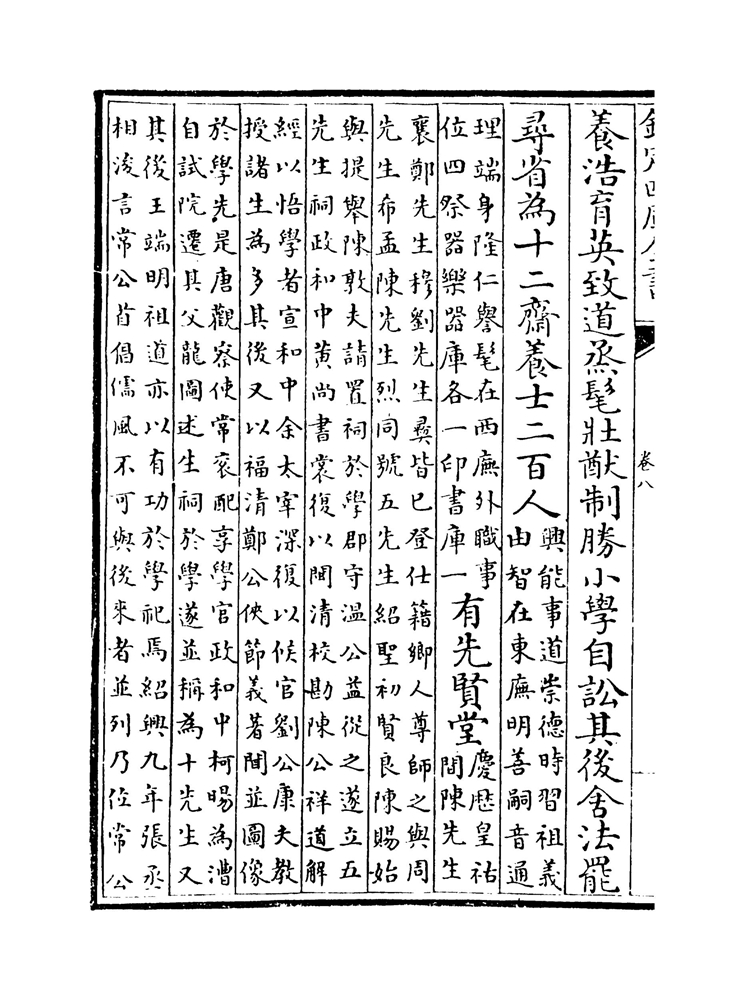 欽定四庫全書
卷八
養浩育英致道烝髦壯猷制勝小學自訟其後舍法罷
尋省為十二齋養士二百人
興能事道崇德時習祖義
由智在東廡明善嗣音通
理端身隆仁譽髦在西廡外職事
位四祭器樂器庫各一印書庫一
有先賢堂
慶歴皇祐
間陳先生
襄鄭先生穆劉先生彞皆已登仕籍鄉人尊師之與周
先生希孟陳先生烈同號五先生紹聖初賢良陳賜始
與提舉陳敦夫請置祠於學郡守溫公益從之遂立五
先生祠政和中黃尚書裳復以閩清校勘陳公祥道解
經以悟學者宣和中余太宰深復以候官劉公康夫教
授諸生為多其後又以福清鄭公俠節義著閩並圖像
於學先是唐觀察使常衮配享學官政和中柯暘為漕
自試院遷其父龍圖述生祠於學遂並稱為十先生又
其後王端明祖道亦以有功於學祀焉紹興九年張丞
相浚言常公首倡儒風不可與後來者並列乃位常公